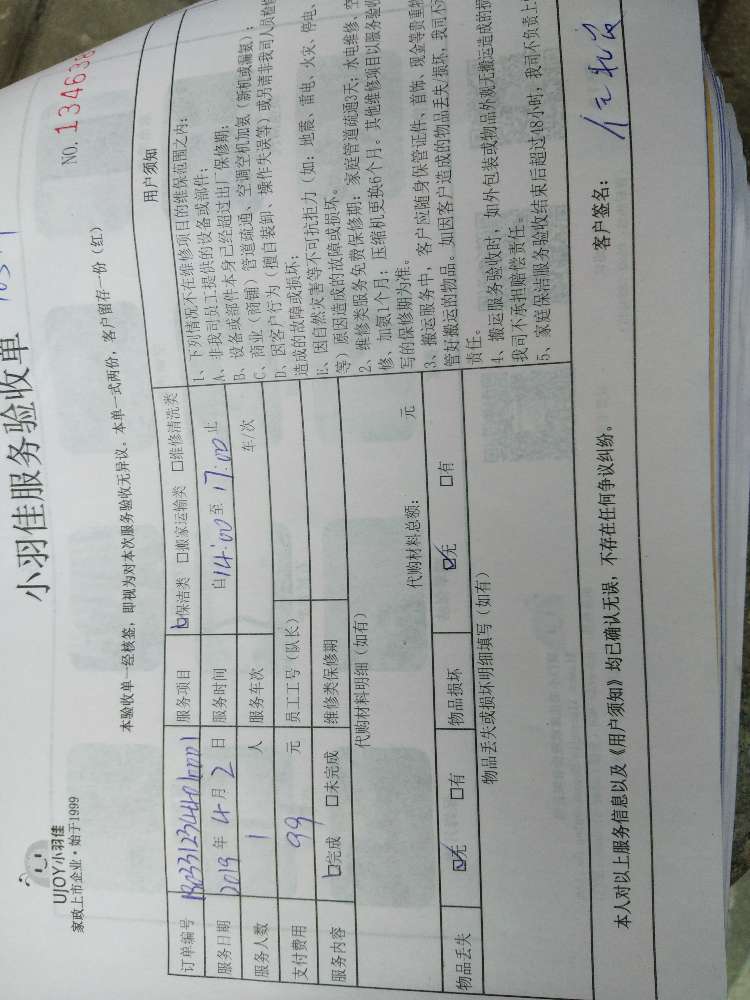 UJOY小羽佳
家政上市企业·始于1999
小羽佳服务验收单
NO. 134636
本验收单一经核签，即视为对本次服务验收无异议。本单一式两份，客户留存一份（红）
订单编号
服务项目 ☑保洁类 □搬家运输类 □维修清洗类
服务日期 2019 年 4 月 2 日 服务时间 自 14:00 至 17:00 止
服务人数 1 人 服务车次 车/次
支付费用 99 元 员工工号（队长）
服务内容 ☑完成 □未完成 维修类保修期
代购材料明细（如有）
代购材料总额： 元
物品丢失 ☑无 □有 物品损坏 ☑无 □有
物品丢失或损坏明细填写（如有）
用户须知
1、下列情况不在维修项目的维保范围之内：
A、非我司员工提供的设备或部件；
B、设备或部件本身已经超过出厂保修期；
C、商业（商铺）管道疏通、空调空机加氨（新机或漏氨）；
D、因客户行为（擅自装卸、操作失误等）或另请非我司人员检修
造成的故障或损坏；
E、因自然灾害等不可抗拒力（如：地震、雷电、火灾、停电、
等）原因造成的故障或损坏。
2、维修类服务免费保修期：家庭管道疏通3天；水电维修、空
修、加氨1个月；压缩机更换6个月。其他维修项目以服务验收
写的保修期为准。
3、搬运服务中，客户应随身保管证件、首饰、现金等贵重物
管好搬运的物品。如因客户造成的物品丢失损坏，我司不
责任。
4、搬运服务验收时，如外包装或物品外观无搬运造成的损
我司不承担赔偿责任。
5、家庭保洁服务验收结束后超过48小时，我司不负责上
本人对以上服务信息以及《用户须知》均已确认无误，不存在任何争议纠纷。
客户签名：